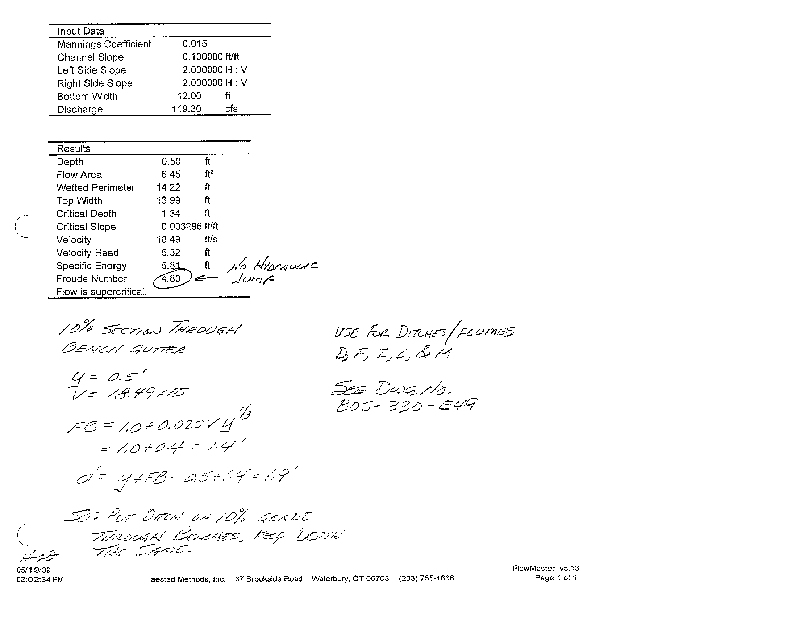 Input Data
Mannings Coefficient 0.015
Channel Slope 0.100000 ft/ft
Left Side Slope 2.000000 H : V
Right Side Slope 2.000000 H : V
Bottom Width 12.00 ft
Discharge cfs
Results
Depth 0.50 ft
Flow Area 6.45 ft²
Wetted Perimeter 14.22 ft
Top Width 13.99 ft
Critical Depth 1.34 ft
Critical Slope 0.003296 ft/ft
Velocity 18.49 ft/s
Velocity Head 5.32 ft
Specific Energy 5.81 ft
Froude Number 4.80 ← NO HYDRAULIC JUMP
Flow is supercritical.
10% SECTION THROUGH
BENCH GUTTER
y = 0.5'
V = 18.49 FPS
FB = 1.0 + 0.025 V y^1/3
= 1.0 + 0.4 = 1.4'
d = y + FB = 0.5 + 1.4 = 1.9'
USE FOR DITCHES/FLUMES
D, F, I, L, & M
SEE DWG. NO.
805-330-E49
ON 10% GRADE
THROUGH BENCHES,
THE SAME.
02:02:34 PM
Haestad Methods, Inc. 37 Brookside Road Waterbury, CT 06708 (203) 755-1666
FlowMaster
Page 1 of 1